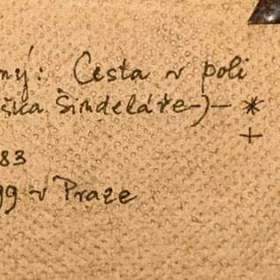 ný: Cesta v poli
šica Šindeláře-)- *
+
83
99 v Praze